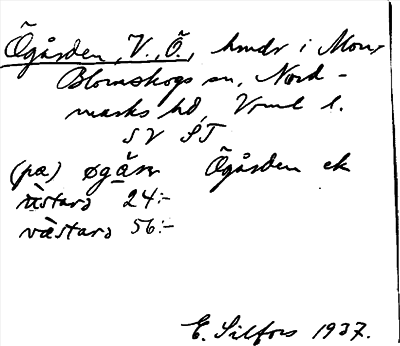 Ögården, V., Ö., hmdr i Mon,
Blomskogs sn, Nord-
marks hd, Vrml l.
SV ST
(pæ) øgåɳ Ögården ek
ùstard 24:-
væ̀stard 56:-
E. Silfors 1937.